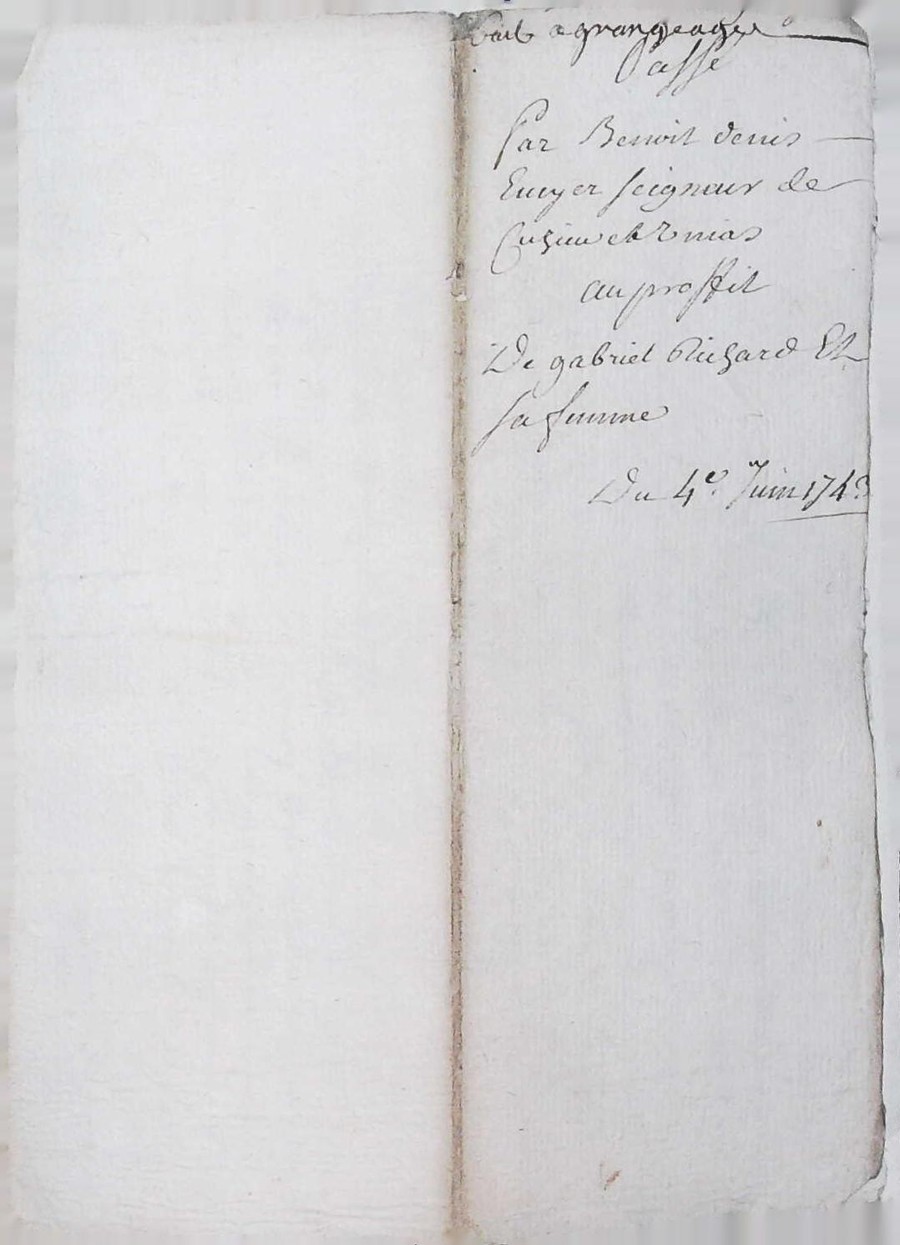 Bail a grangeage
Passé
Par Benoit denis
Ecuyer seigneur de
Cuzieu et
au proffit
De gabriel Richard Et
sa femme
Du 4e. Juin 1743